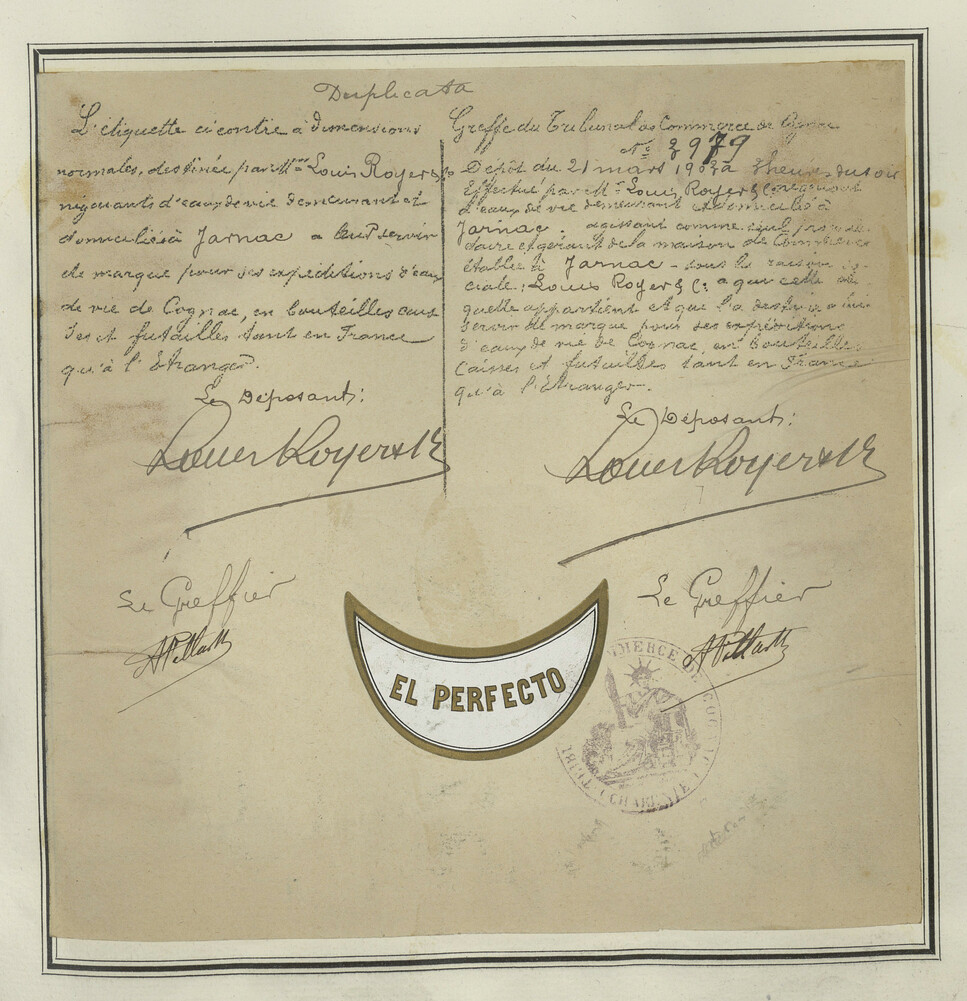 Duplicata
L'étiquette ci contre à dimensions
normales, destinée par MM. Louis Royer & Co
négociants d'eaux de vie demeurant et
domiciliés à Jarnac a leur servir
de marque pour ses expéditions d'eaux
de vie de Cognac, en bouteilles cais
ses et futailles tant en France
qu'à l'Etranger.
Le Déposant:
Louis Royer & Co
Le Greffier
Greffe du Tribunal de Commerce de Cognac
No 3979
Dépôt du 21 mars 190 à heures du soir
Effectué par MM. Louis Royer & Co négociant
d'eaux de vie demeurant et domiciliés à
Jarnac. agissant comme seul proprié
taire et gérant de la maison de Commerce
établie à Jarnac - sous la raison so
ciale: Louis Royer & Co a qui cette éti
quette appartient et que l'a destinée a lui
servir de marque pour ses expéditions
d'eaux de vie de Cognac, en bouteilles
caisses et futailles tant en France
qu'à l'Etranger.
Le Déposant:
Louis Royer & Co
Le Greffier
EL PERFECTO
TRIBL DE COMMERCE DE COGNAC
CHARENTE